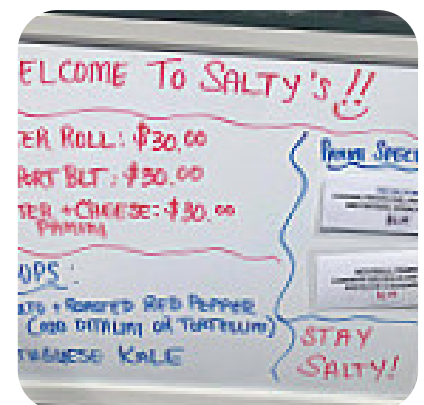 ELCOME TO SALTY'S!!
ER ROLL: $30.00
PORT BLT: $30.00
TER + CHEESE: $30.00
PANINI
UPS:
TO + ROASTED RED PEPPER
(ADD DITALINI OR TORTELLINI)
TUGUESE KALE
PANINI SPECI
STAY
SALTY!